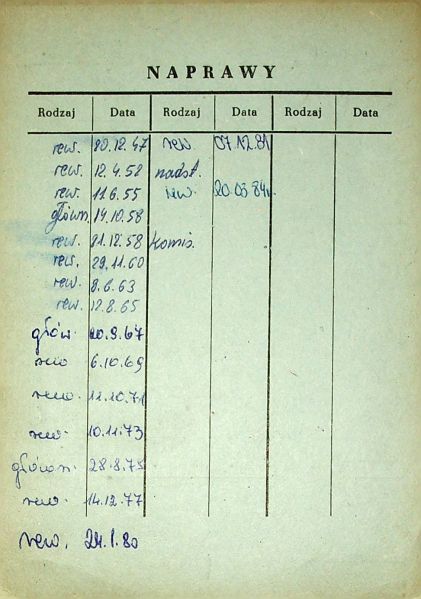 NAPRAWY
Rodzaj Data Rodzaj Data Rodzaj Data
rew. 20.12.47 rew 07.12.81
rew. 12.4.52 nadst.
rew. 11.6.55 rew. 20.03.84r.
główn. 14.10.58
rew. 21.12.58 komis.
rew. 29.11.60
rew. 8.6.63
rew. 12.8.65
głów. 20.9.67
rew 6.10.69
rew. 11.10.71
rew. 10.11.73
główn. 28.8.75
rew. 14.12.77
rew. 24.1.80